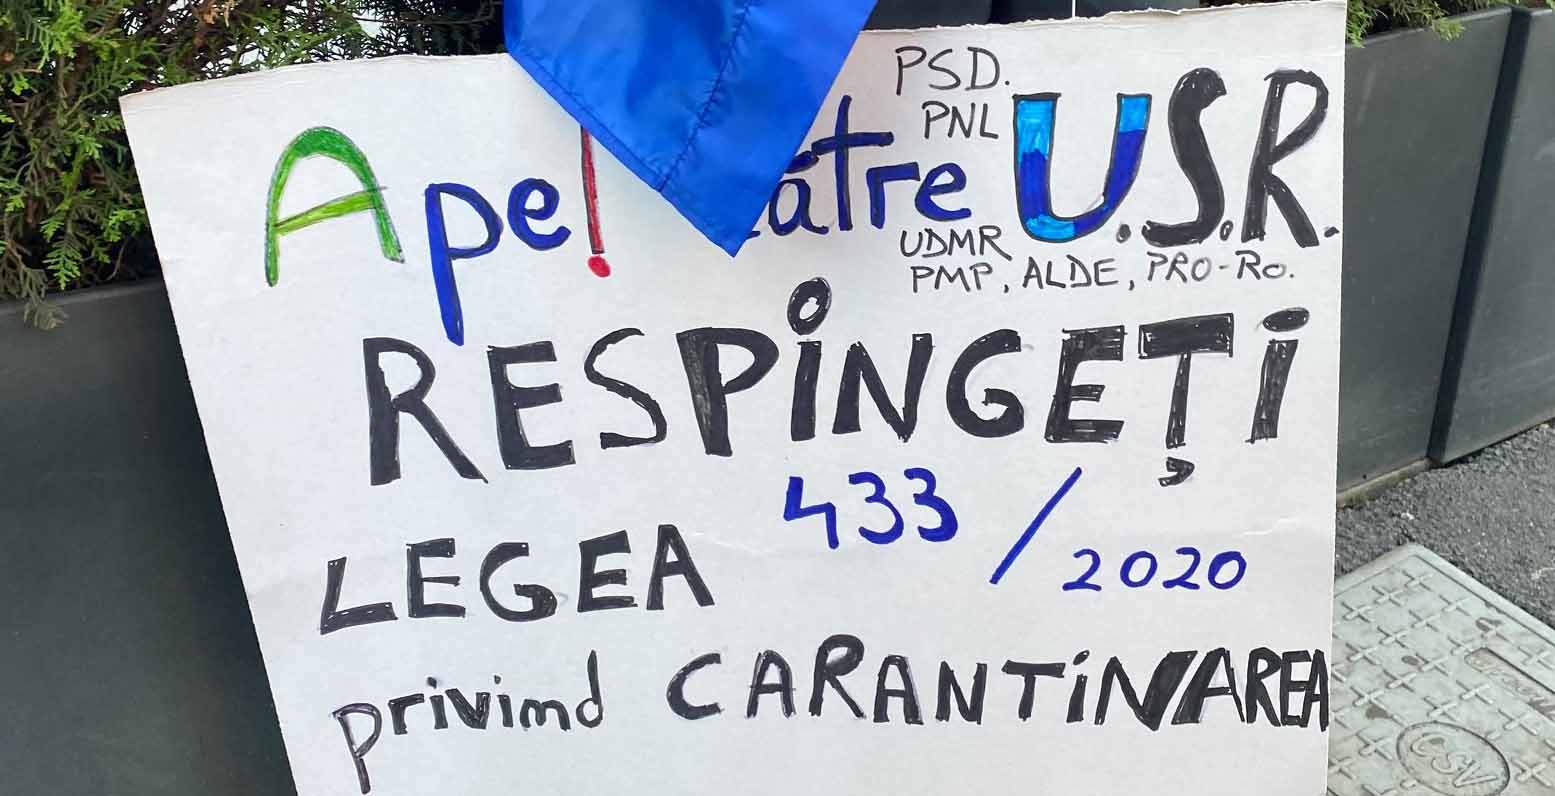 PSD.
PNL
Ape! ătre U.S.R.
UDMR
PMP, ALDE, PRO-RO.
RESPINGEȚI
LEGEA 433/2020
privind CARANTINAREA
CSV